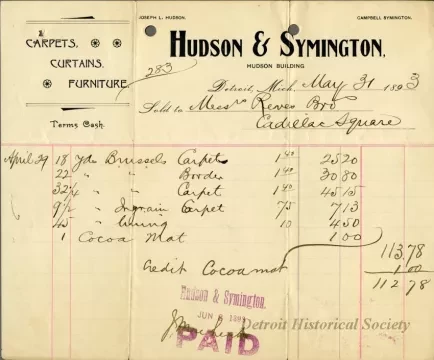 JOSEPH L. HUDSON. CAMPBELL SYMINGTON.
CARPETS.
CURTAINS.
FURNITURE.
HUDSON & SYMINGTON,
HUDSON BUILDING
283
Detroit, Mich. May 31 1893
Sold to Messrs Reves Bro
Cadillac Square
Terms Cash.
April 29 18 Yds Brussels Carpet 1.40 25 20
22 " " Border 1.40 30 80
32 1/4 " " Carpet 1.40 45 15
9 1/2 " Ingrain Carpet 75 7 13
45 " Lining 10 4 50
1 Cocoa Mat 1 00
113.78
Credit Cocoa mat 1 00
112 78
Hudson & Symington.
JUN
PAID
Detroit Historical Society